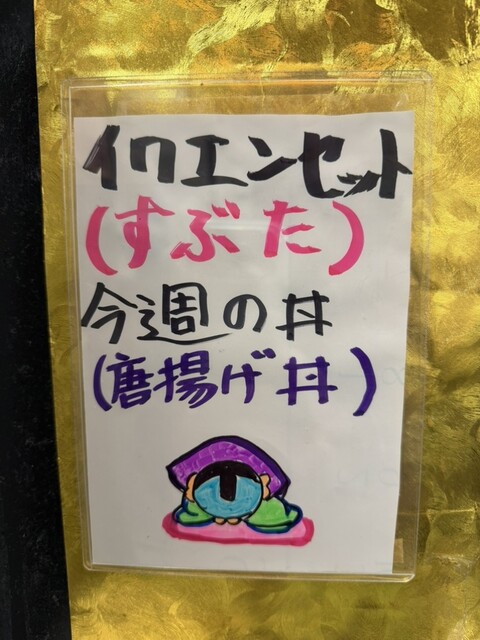 イワエンセット
(すぶた)
今週の丼
(唐揚げ丼)